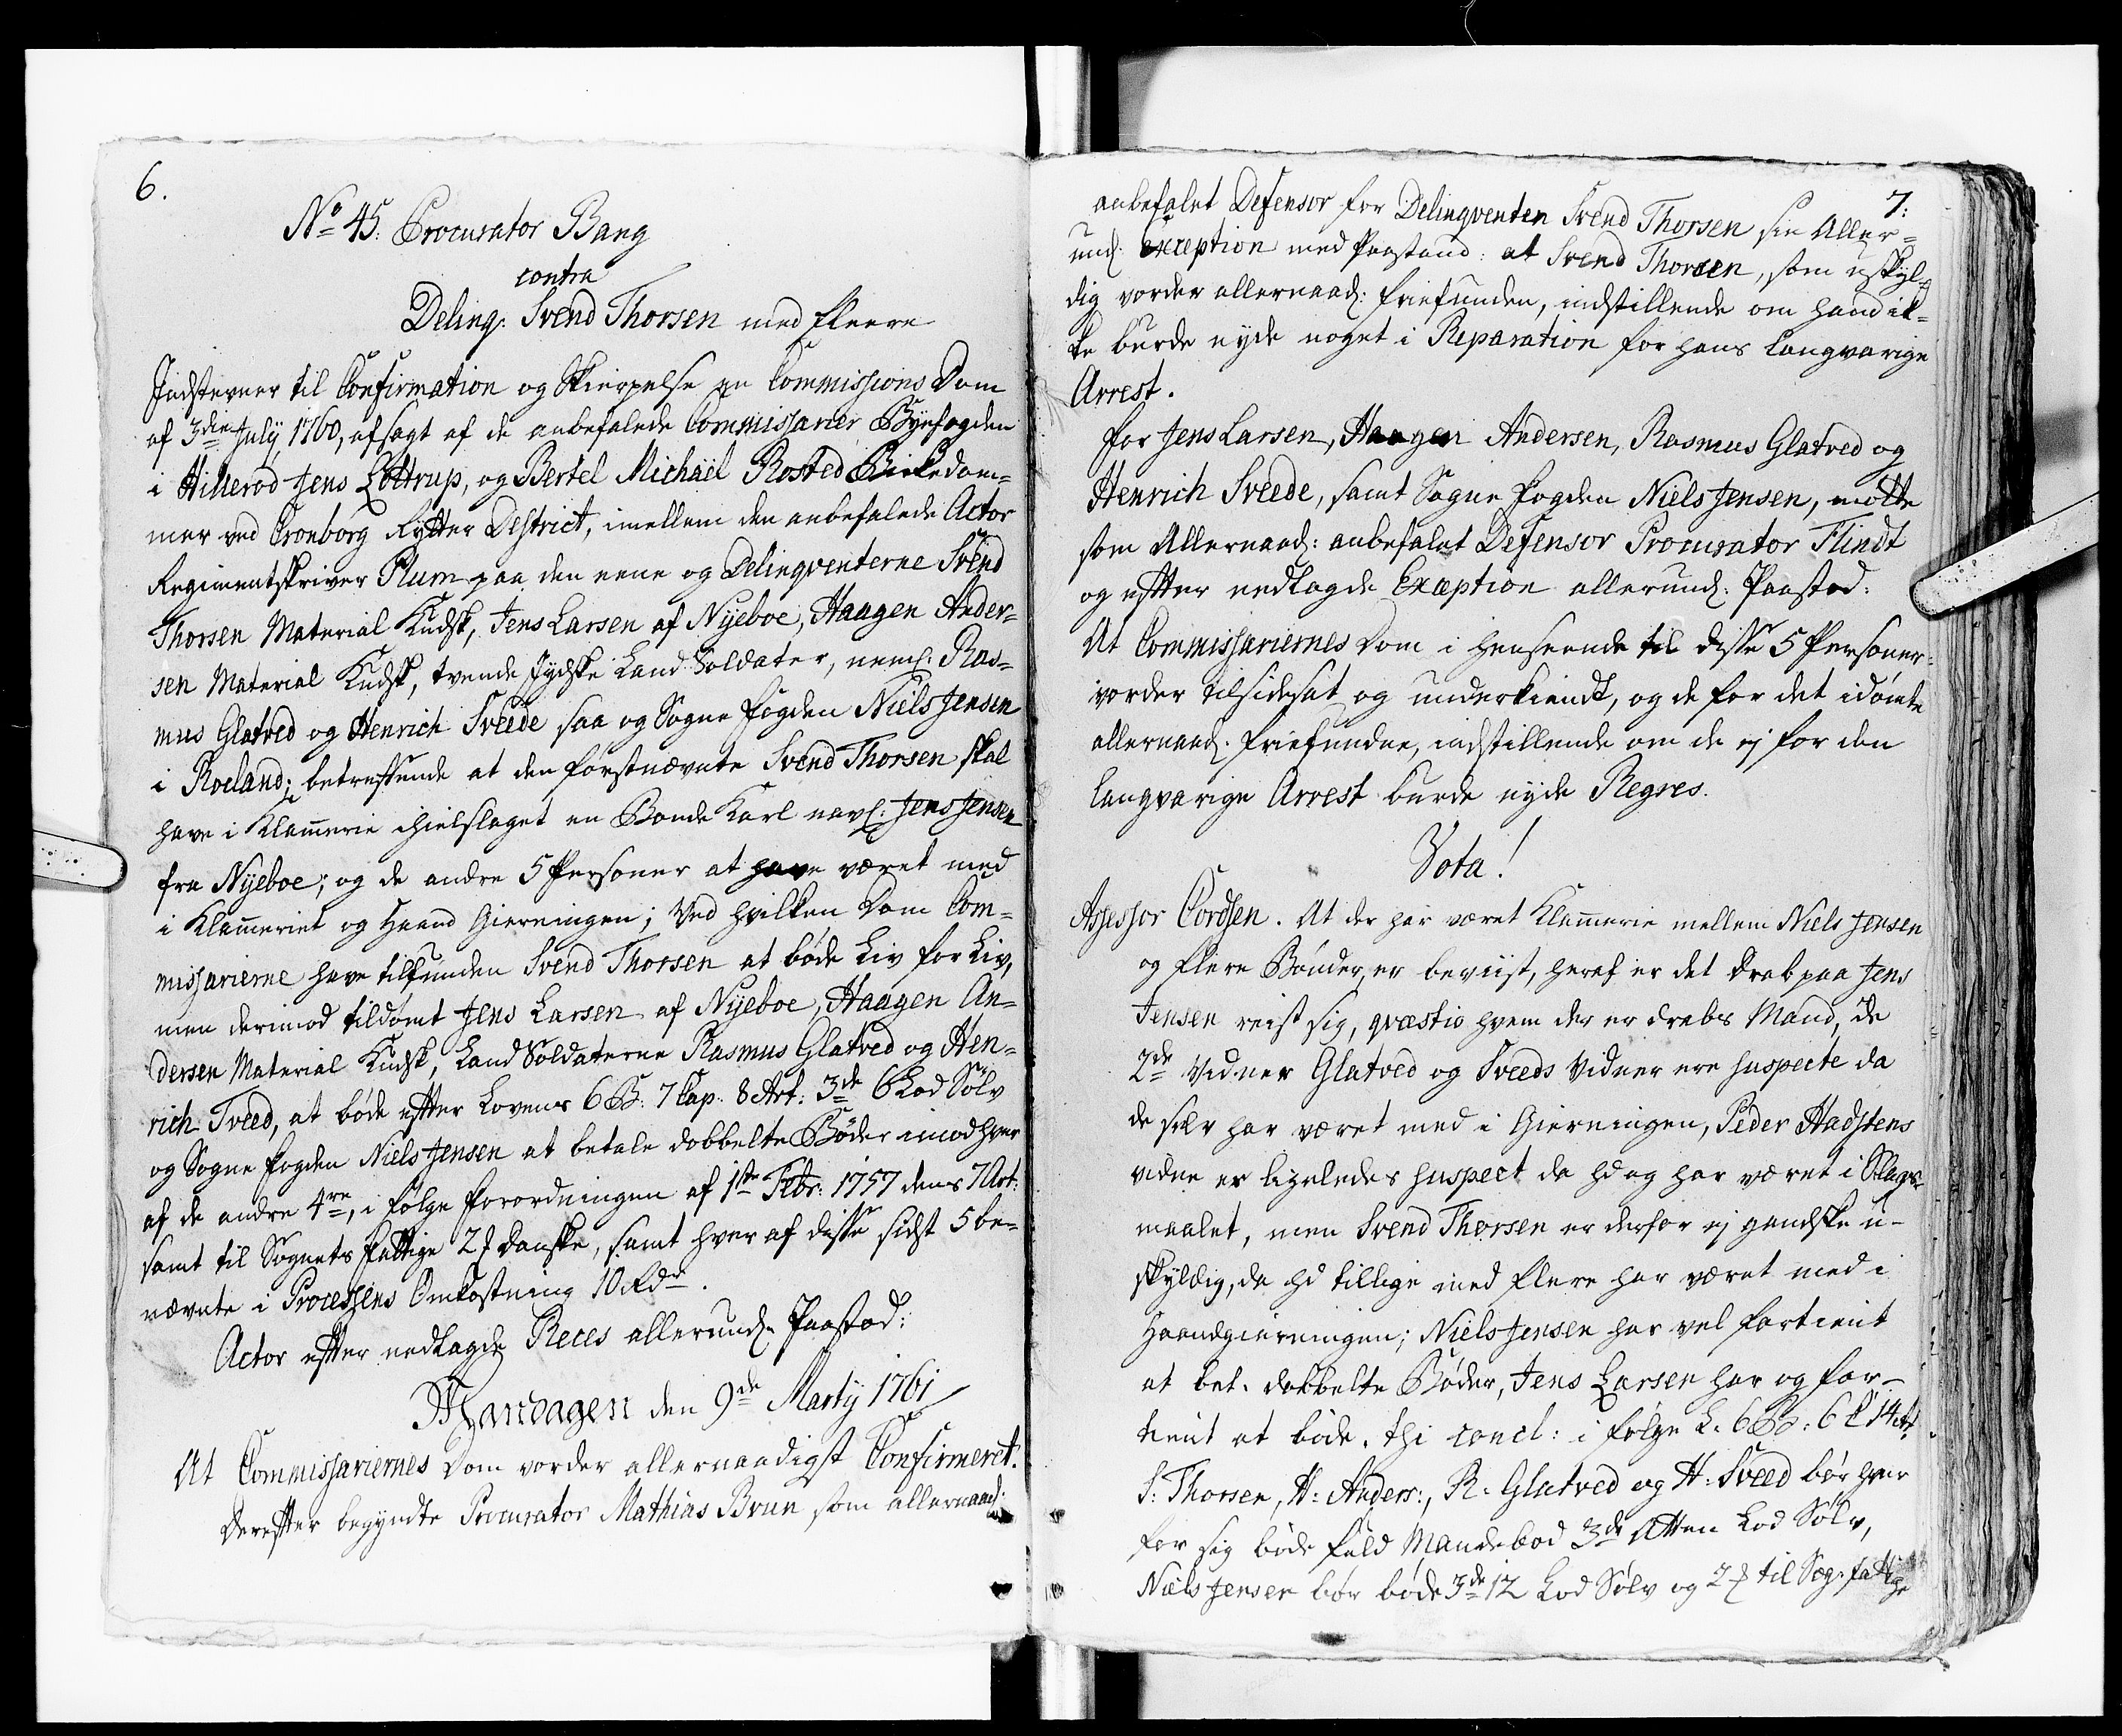 6.
No 45. Procurator Bang
contra
Delinq: Svend Thorsen med fleere
Indstevner til Confirmation og Skierpelse en Commissions Dom
af 3die July 1760, afsagt af de anbefalede Commissarier Byefogden
i Hillerød Jens Lottrup, og Bertel Michaël Rosted Birkedom-
mer ved Cronborg Rytter District, imellem den anbefalede Actor
Regimentskriver Plum paa den eene og Delinqventerne Svend
Thorsen Material Kudsk, Jens Larsen af Nyeboe, Haagen Ander-
sen Material Kudsk, tvende Jydske Land Soldater, neml. Ras-
mus Glatved og Henrich Sveede saa og Sogne fogden Niels Jensen
i Roeland; betreffende at den førstnævnte Svend Thorsen skal
have i Klammerie ihielslaget en Bonde Karl navl. Jens Jensen
fra Nyeboe; og de andre 5 Personer at have været med
i Klammeriet og Haand Gierningen; Ved hvilken Dom Com-
missarierne have tilfunden Svend Thorsen at bøde Liv for Liv,
men derimod tildømt Jens Larsen af Nyeboe, Haagen An-
dersen Material Kudsk, Land Soldaterne Rasmus Glatved og Hen-
rich Sveed, at bøde efter Lovens 6 B: 7 Cap: 8 Art: 3de 6 Lod Sølv
og Sogne fogden Niels Jensen at betale dobbelte Bøder imod hver
af de andre 4re, i følge Forordningen af 1ste Febr: 1757 dens 7 Art:
samt til Sognets fattige 2 ʄ danske, samt hver af disse sidst 5 be-
nævnte i Processens Omkostning 10 Rdr.
Actor efter nedlagde Reces allerund. Paastod:
Mandagen den 9de Marty 1761
At Commissariernes Dom vorder allernaadigst Confirmeret.
Derefter begyndte Procurator Mathias Brun som allernaad:
7.
anbefalet Defensor for Delinqventen Svend Thorsen sin Aller-
und. Exception med Paastand: at Svend Thorsen, som uskyl-
dig vorder allernaad: friefunden, indstillende om hand ik-
ke burde nyde noget i Reparation for hans langvarige
Arrest.
For Jens Larsen, Haagen Andersen, Rasmus Glatved og
Henrich Sveede, samt Sogne fogden Niels Jensen, mötte
som Allernaad: anbefalet Defensor Procurator Flindt
og efter nedlagde Exception allerund. Paastod:
At Commissariernes Dom i henseende til disse 5 Personer
vorder tilsidesat og underkiendt, og de for det idömte
allernaad. friefundne, indstillende om de ej for den
langvarige Arrest burde nyde Regres.
Vota!
Assessor Cordsen. At der har været Klammerie mellem Niels Jensen
og flere Bönder, er beviist, heraf er det Drab paa Jens
Jensen reist sig, qvæstio hvem der er drabs Mand, de
2de Vidner Glatved og Sveeds Vidner ere suspecte da
de selv har været med i Gierningen, Peder Hadstens
vidne er ligeledes suspect da hd og har været i Slags-
maalet, men Svend Thorsen er derfor ej gandske u-
skyldig, da hd tillige med flere har været med i
Haandgierningen; Niels Jensen har vel fortient
at bet. dobbelte Bøder, Jens Larsen har og for-
tient at bøde. thi concl: i følge L. 6 B: 6 C 14 Ar
S: Thorsen, H: Anders:, R. Glatved og H: Sveed bør hver
for sig bøde fuld Mandebod 3de Atten Lod Sølv,
Niels Jensen bør bøde 3de 12 Lod Sølv og 2 ʄ til Sog. fattige